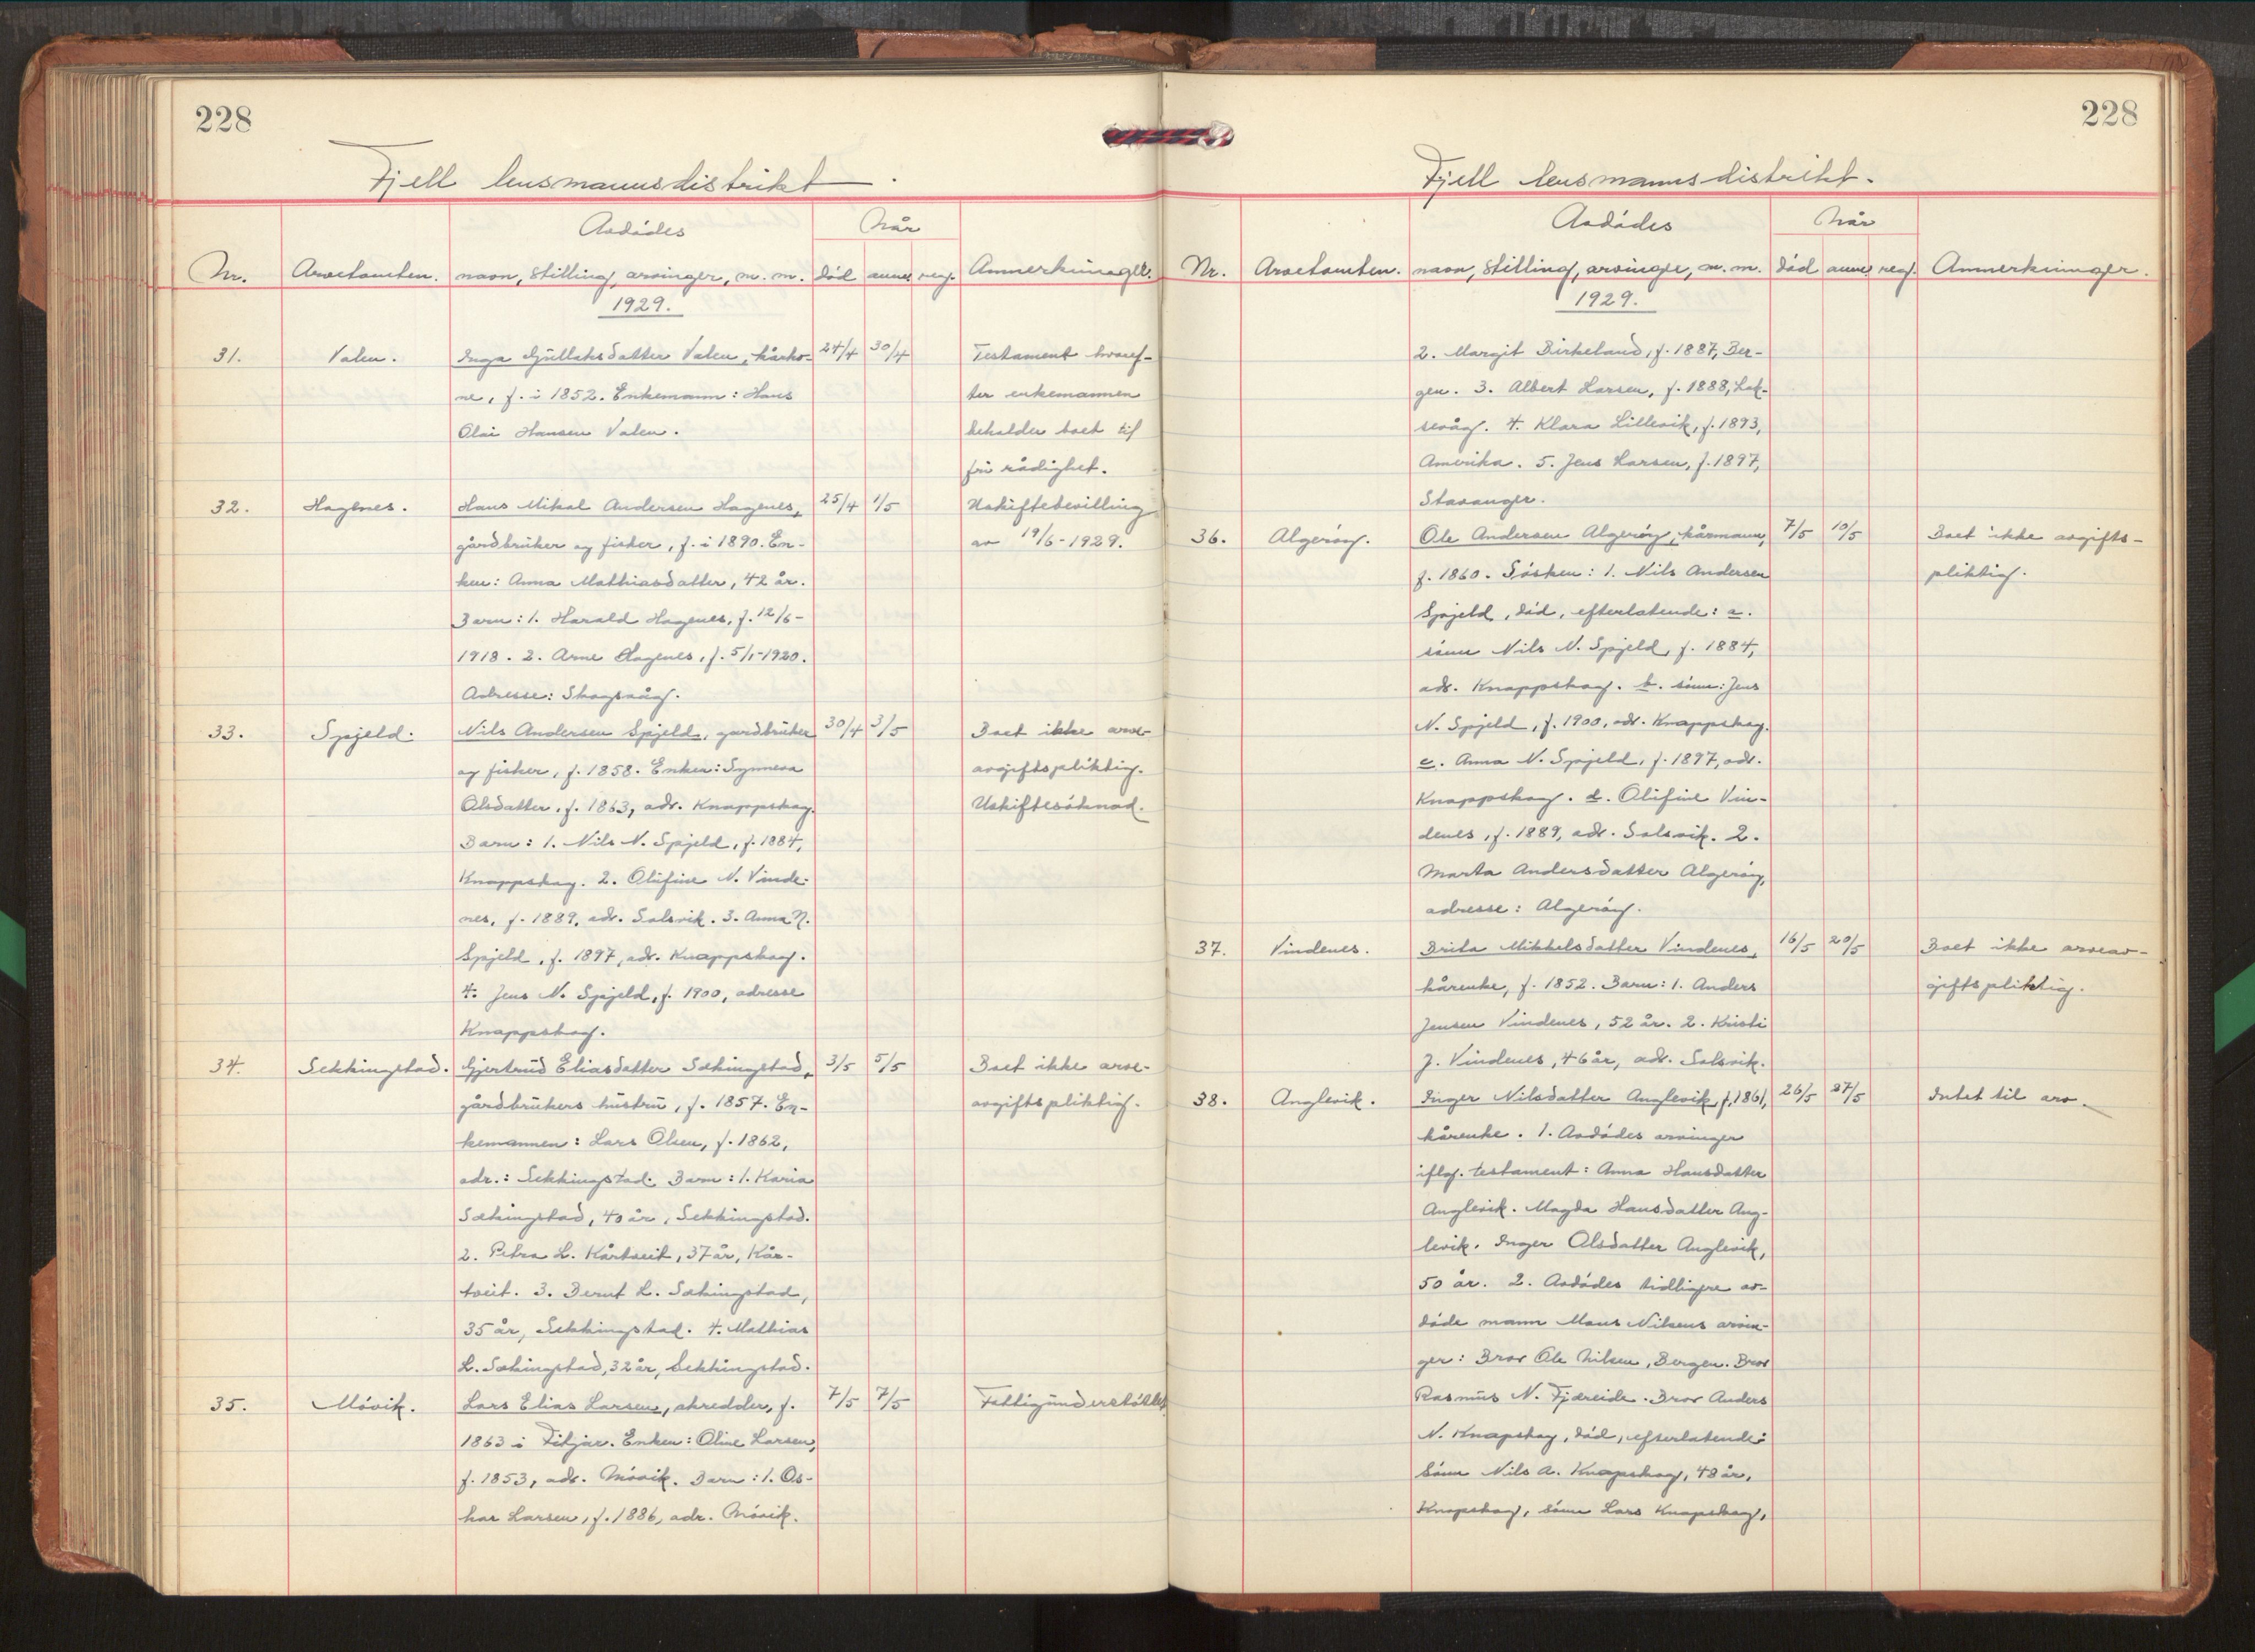 228
Fjell lensmannsdistrikt.
Avdødes
Når
Nr. Arvetomten. navn, stilling, arvinger, m. m. død anm. reg. Anmerkninger.
1929.
31. Valen. Inga Gjullaksdatter Valen, kårko- 24/4 30/4 Testament hvoref-
ne, f. i 1852. Enkemann: Hans ter enkemannen
Olai Hansen Valen. beholder boet til
fri rådighet.
32. Hagenes. Hans Mikal Andersen Hagenes, 25/4 1/5 Uskiftebevilling
gårdbruker og fisker, f. i 1890. En- av 19/6-1929.
ken: Anna Mathiasdatter, 42 år.
Barn: 1. Harald Hagenes, f. 12/6-
1918. 2. Arne Hagenes, f. 5/1-1920.
Adresse: Skogsvåg.
33. Spjeld. Nils Andersen Spjeld, gardbruker 30/4 3/5 Boet ikke arve-
og fisker, f. 1858. Enken: Synneva avgiftspliktig.
Olsdatter, f. 1863, adr. Knappskog. Uskiftesøknad.
Barn: 1. Nils N. Spjeld, f. 1884,
Knappskog. 2. Olufine N. Vinde-
nes, f. 1889, adr. Solsvik. 3. Anna N.
Spjeld, f. 1897, adr. Knappskog.
4. Jens N. Spjeld, f. 1900, adresse
Knappskog.
34. Sekkingstad. Gjertrud Eliasdatter Sækingstad, 3/5 5/5 Boet ikke arve-
gårdbrukers hustru, f. 1857. En- avgiftspliktig.
kemannen: Lars Olsen, f. 1862,
adr.: Sekkingstad. Barn: 1. Karia
Sækingstad, 40 år, Sekkingstad.
2. Petra L. Kårtveit, 37 år, Kår-
tveit. 3. Bernt L. Sækingstad,
35 år, Sekkingstad. 4. Mathias
L. Sækingstad, 32 år, Sekkingstad.
35. Móvik. Lars Elias Larsen, skredder, f. 7/5 7/5 Fattigunderstøttet
1863 i Fitjar. Enken: Oline Larsen,
f. 1853, adr. Móvik. Barn: 1. Os-
kar Larsen, f. 1886, adr. Móvik.
228
Fjell lensmannsdistrikt.
Avdødes
Når
Nr. Arvetomten. navn, stilling, arvinger, m. m. død anm. reg. Anmerkninger.
1929.
2. Margit Birkeland, f. 1887, Ber-
gen. 3. Albert Larsen, f. 1888, Lak-
sevåg. 4. Klara Lillevik, f. 1893,
Amerika. 5. Jens Larsen, f. 1897,
Stavanger.
36. Algerøy. Ole Andersen Algerøy, kårmann, 7/5 10/5 Boet ikke avgifts-
f. 1860. Søsken: 1. Nils Andersen pliktig.
Spjeld, død, efterlatende: a.
sønn Nils N. Spjeld, f. 1884,
adr. Knappskog. b. sønn: Jens
N. Spjeld, f. 1900, adr. Knappskog.
c. Anna N. Spjeld, f. 1897, adr.
Knappskog. d. Olufine Vin-
denes, f. 1889, adr. Solsvik. 2.
Marta Andersdatter Algerøy,
adresse: Algerøy.
37. Vindenes. Brita Mikkelsdatter Vindenes, 16/5 20/5 Boet ikke arveav-
kårenke, f. 1852. Barn: 1. Anders giftspliktig.
Jensen Vindenes, 52 år. 2. Kristi
J. Vindenes, 46 år, adr. Solsvik.
38. Anglevik. Inger Nilsdatter Anglevik, f. 1861, 26/5 27/5 Intet til arv.
kårenke. 1. Avdødes arvinger
iflg. testament: Anna Hansdatter
Anglevik. Magda Hansdatter Ang-
levik. Inger Olsdatter Anglevik,
50 år. 2. Avdødes tidligere av-
døde mann Mons Nilsens arvin-
ger: Bror Ole Nilsen, Bergen. Bror
Rasmus N. Fjæreide. Bror Anders
N. Knapskog, død, efterlatende:
Sønn Nils A. Knapskog, 48 år,
Knapskog, sønn Lars Knapskog,